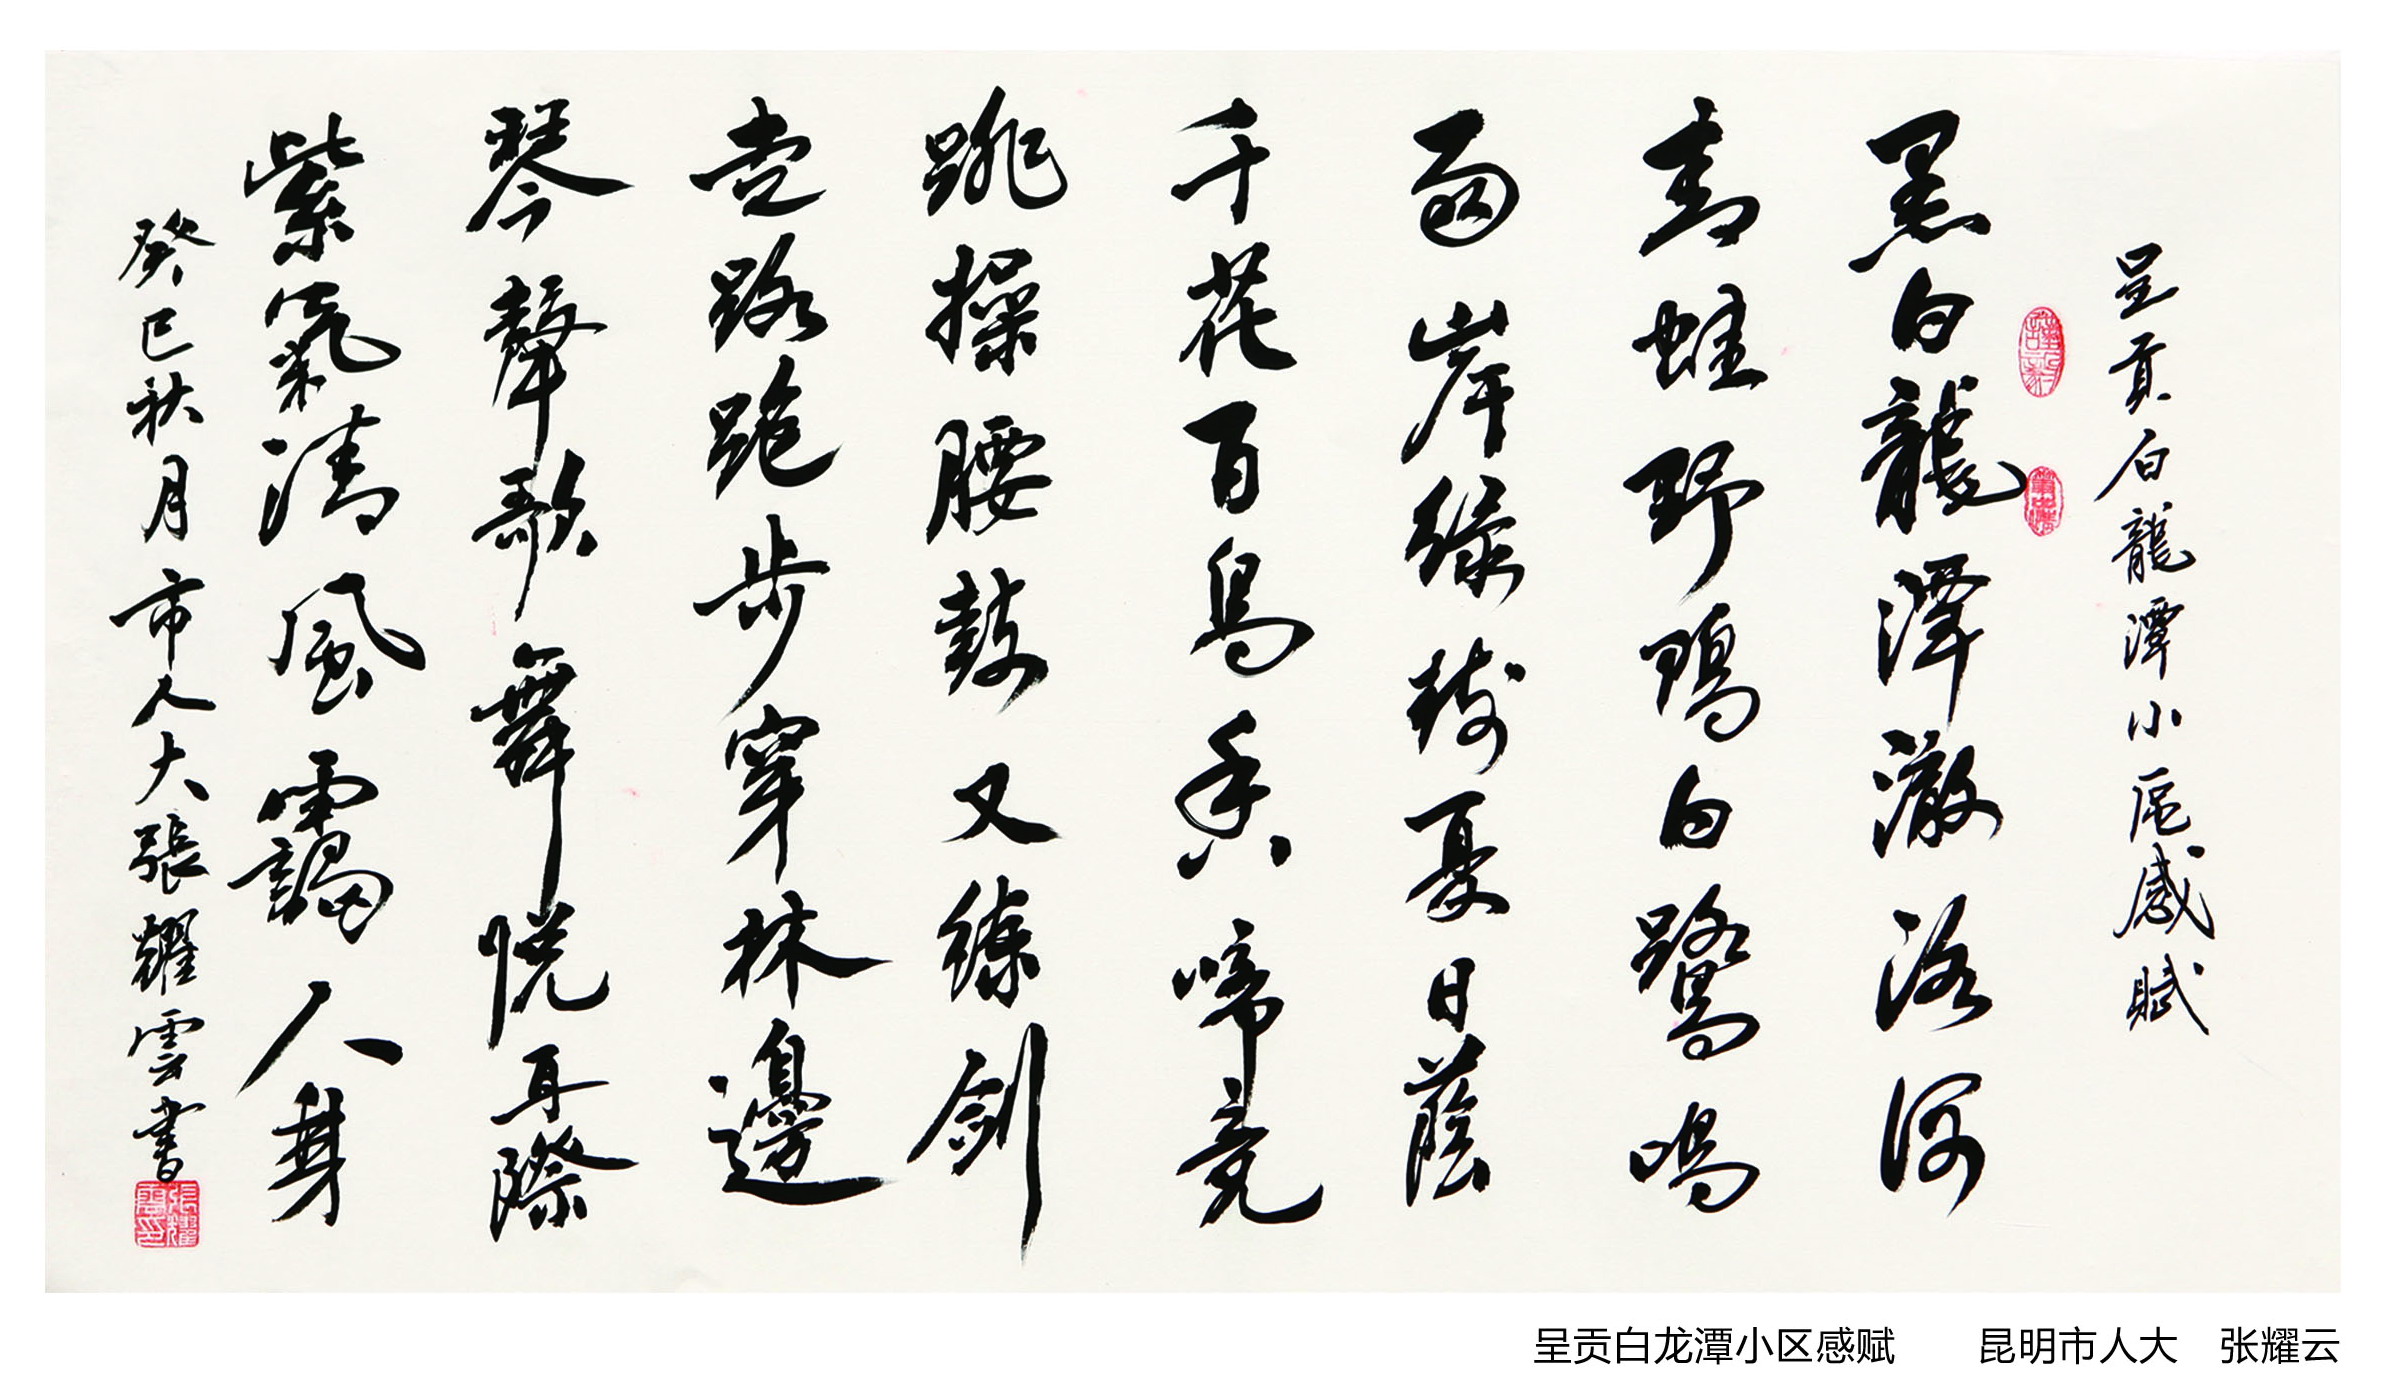 呈貢白龍潭小區感賦
黑白龍潭澈洛河
青蛙野鴨白鷺鳴
兩岸綠樹夏日蔭
千花百鳥香啼竞
跳操腰鼓又練劍
走路跑步穿林邊
琴聲歌舞悦耳際
紫氣清風靄人身
癸巳秋月市人大張耀雲書
呈贡白龙潭小区感赋 昆明市人大 张耀云